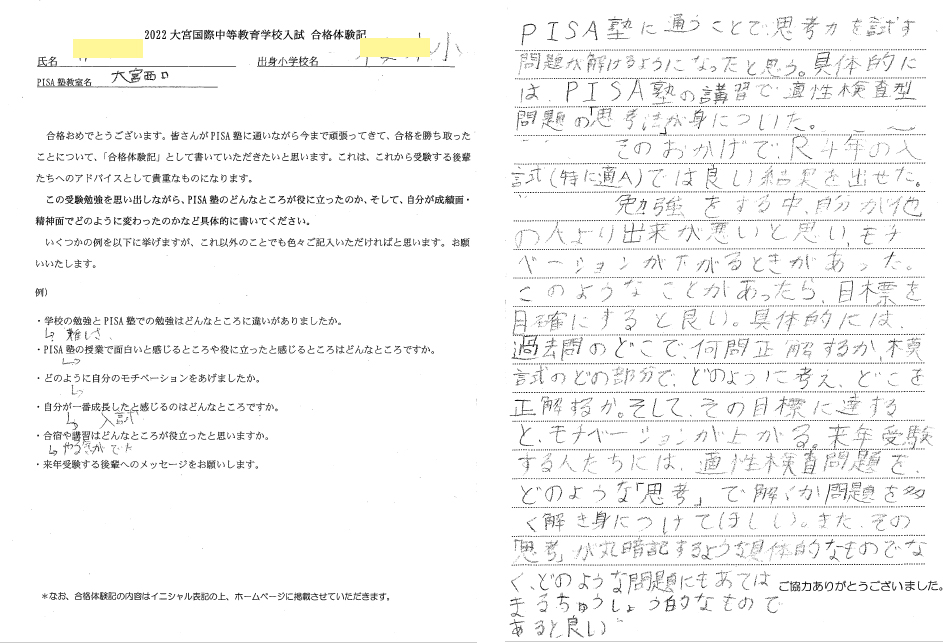 2022大宮国際中等教育学校入試 合格体験記
氏名 出身小学校名 小
PISA塾教室名 大宮西口
合格おめでとうございます。皆さんがPISA塾に通いながら今まで頑張ってきて、合格を勝ち取った
ことについて、「合格体験記」として書いていただきたいと思います。これは、これから受験する後輩
たちへのアドバイスとして貴重なものになります。
この受験勉強を思い出しながら、PISA塾のどんなところが役に立ったのか、そして、自分が成績面・
精神面でどのように変わったのかなど具体的に書いてください。
いくつかの例を以下に挙げますが、これ以外のことでも色々ご記入いただければと思います。お願
いいたします。
例）
・学校の勉強とPISA塾での勉強はどんなところに違いがありましたか。
↳ 難しさ
・PISA塾の授業で面白いと感じるところや役に立ったと感じるところはどんなところですか。
・どのように自分のモチベーションをあげましたか。
・自分が一番成長したと感じるのはどんなところですか。
↳ 入試
・合宿や講習はどんなところが役立ったと思いますか。
↳ やる気がでた
・来年受験する後輩へのメッセージをお願いします。
＊なお、合格体験記の内容はイニシャル表記の上、ホームページに掲載させていただきます。
PISA塾に通うことで思考力を試す
問題が解けるようになったと思う。具体的に
は、PISA塾の講習で適性検査型
問題の「思考法」が身についた。
このおかげで、R4年の入
試(特に適A)では良い結果を出せた。
勉強をする中、自分が他
の人より出来が悪いと思い、モチ
ベーションが下がるときがあった。
このようなことがあったら、目標を
目確にすると良い。具体的には、
過去問のどこで、何問正解するか、模
試のどの部分で、どのように考え、どこを
正解するか。そして、その目標に達する
と、モチベーションが上がる。来年受験
する人たちには、適性検査問題を、
どのような「思考」で解くか問題を多
く解き身につけてほしい。また、その
「思考」が丸暗記するような具体的なものでな
く、どのような問題にもあては
まるちゅうしょう的なもので
あると良い
ご協力ありがとうございました。